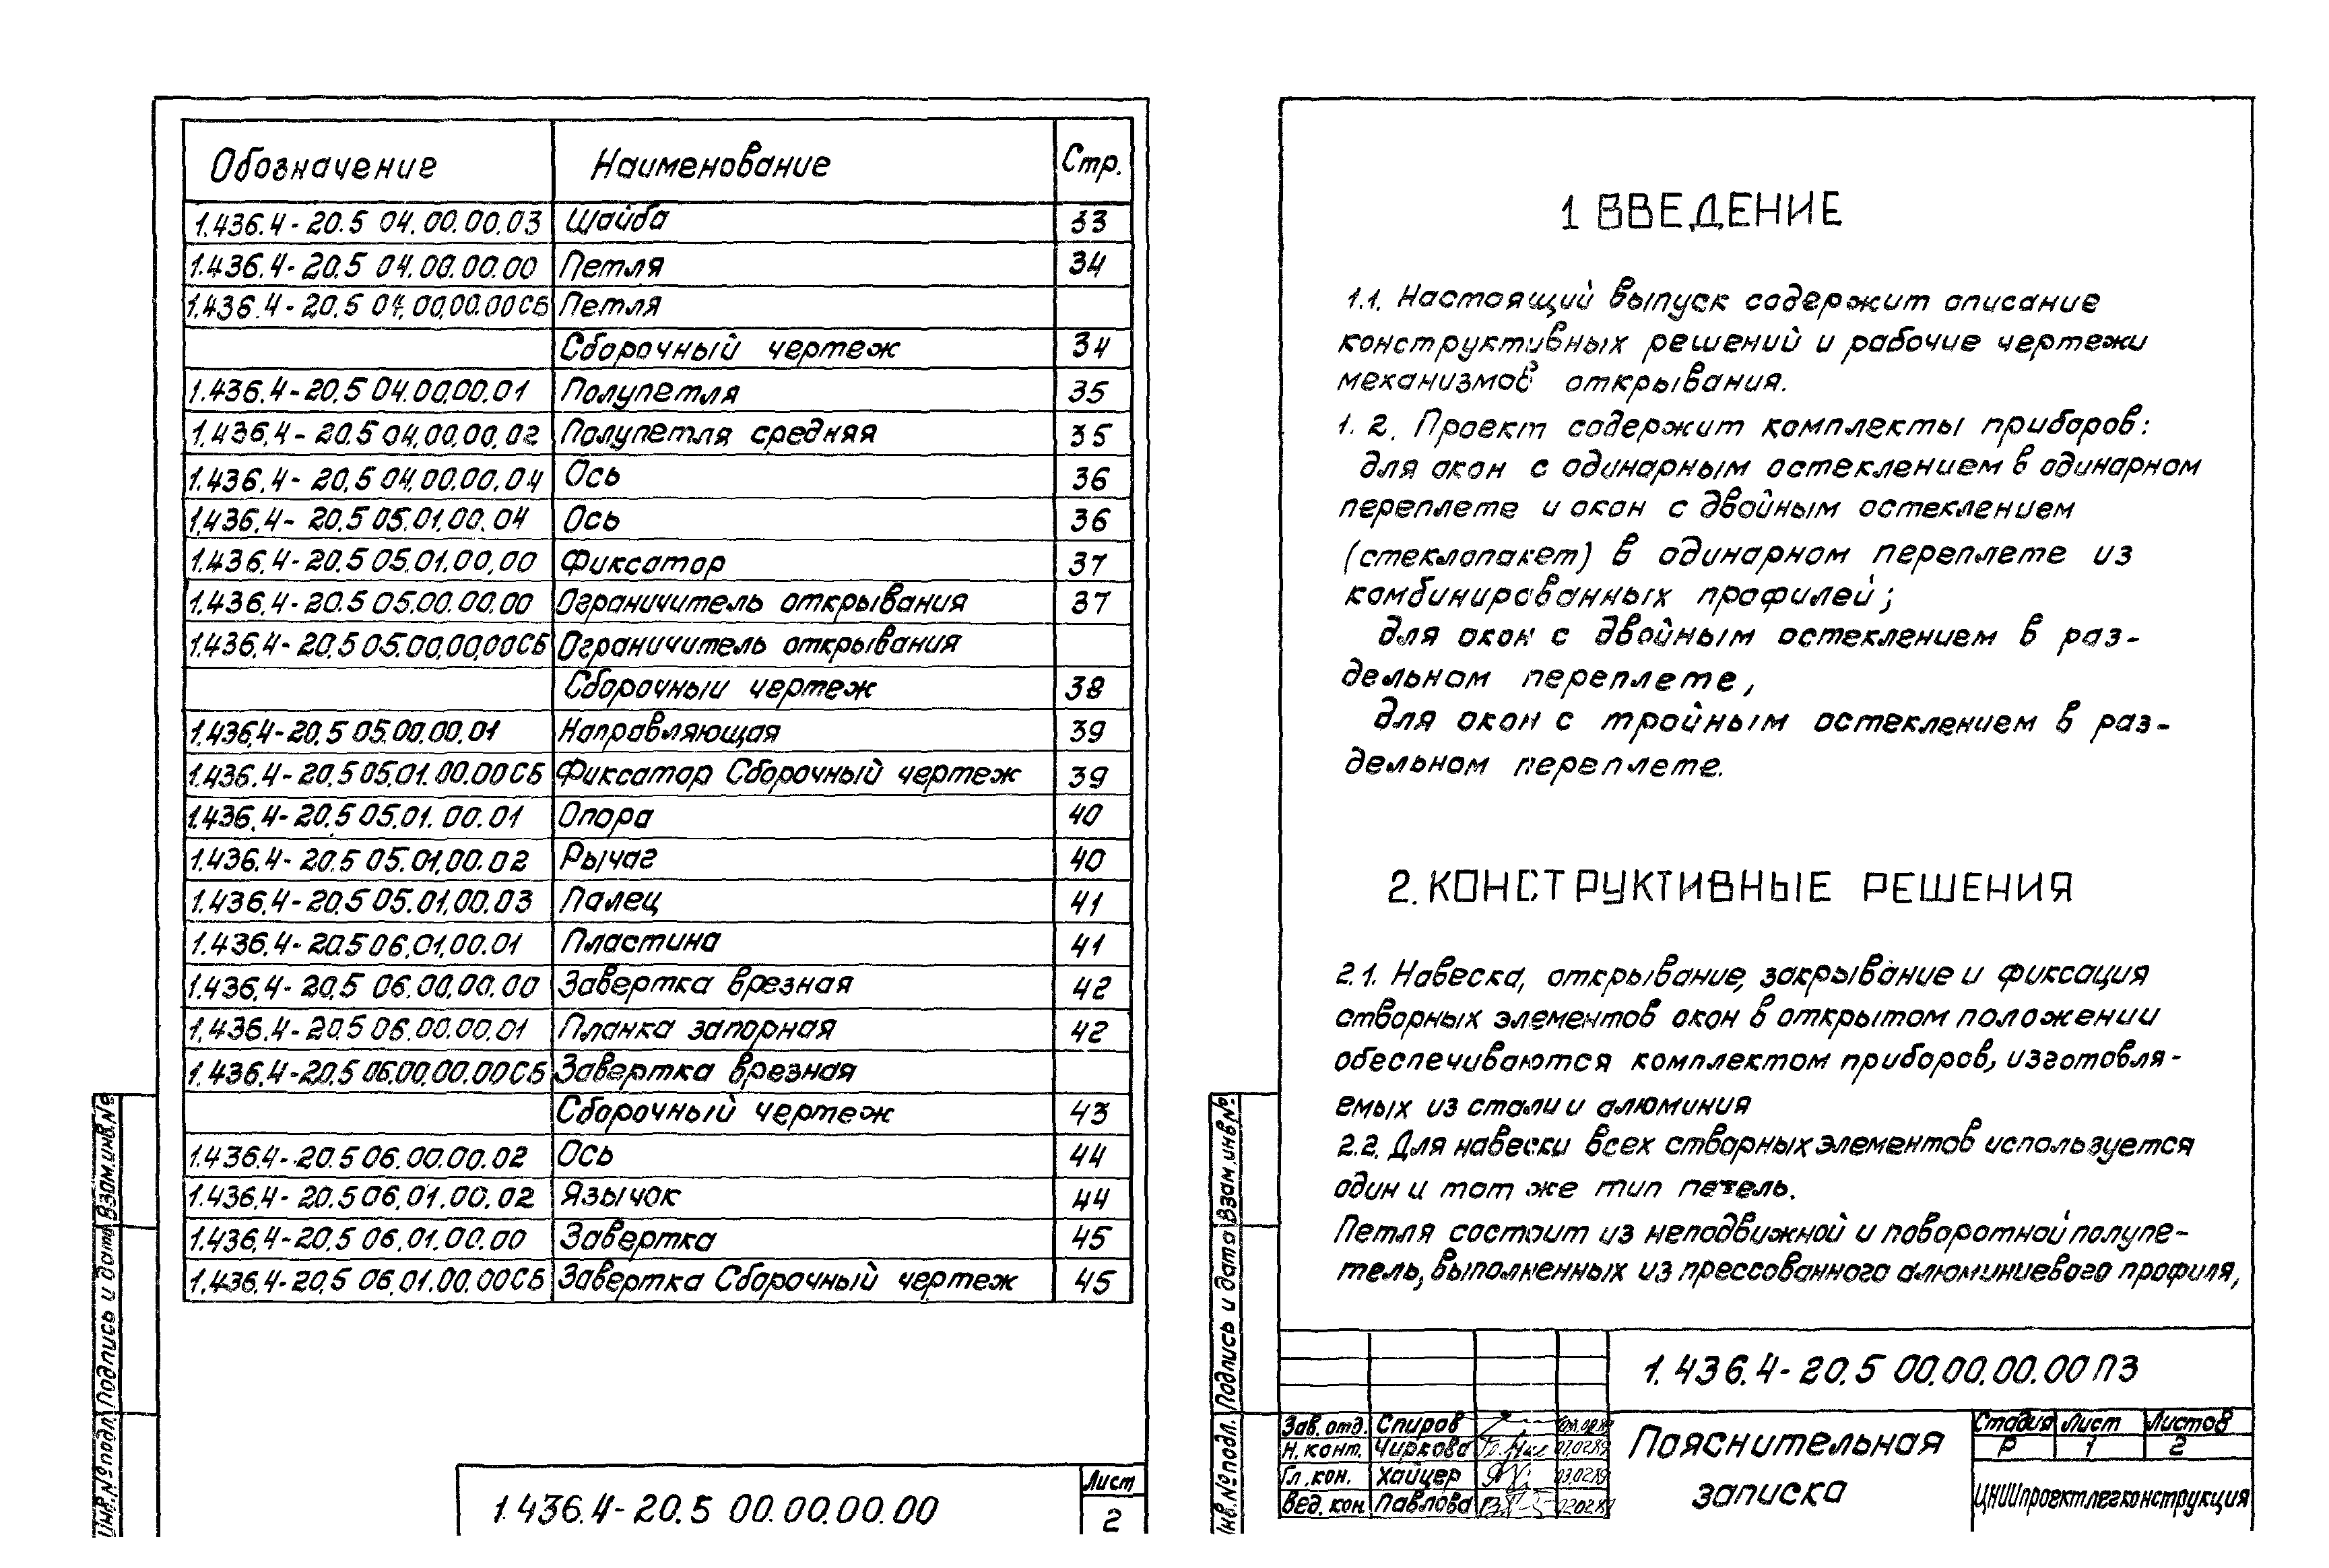 Обозначение Наименование Стр.
1.436.4-20.5 04.00.00.03 Шайба 33
1.436.4-20.5 04.00.00.00 Петля 34
1.436.4-20.5 04.00.00.00СБ Петля
Сборочный чертеж 34
1.436.4-20.5 04.00.00.01 Полупетля 35
1.436.4-20.5 04.00.00.02 Полупетля средняя 35
1.436.4-20.5 04.00.00.04 Ось 36
1.436.4-20.5 05.01.00.04 Ось 36
1.436.4-20.5 05.01.00.00 Фиксатор 37
1.436.4-20.5 05.00.00.00 Ограничитель открывания 37
1.436.4-20.5 05.00.00.00СБ Ограничитель открывания
Сборочный чертеж 38
1.436.4-20.5 05.00.00.01 Направляющая 39
1.436.4-20.5 05.01.00.00СБ Фиксатор Сборочный чертеж 39
1.436.4-20.5 05.01.00.01 Опора 40
1.436.4-20.5 05.01.00.02 Рычаг 40
1.436.4-20.5 05.01.00.03 Палец 41
1.436.4-20.5 06.01.00.01 Пластина 41
1.436.4-20.5 06.00.00.00 Завертка врезная 42
1.436.4-20.5 06.00.00.01 Планка запорная 42
1.436.4-20.5 06.00.00.00СБ Завертка врезная
Сборочный чертеж 43
1.436.4-20.5 06.00.00.02 Ось 44
1.436.4-20.5 06.01.00.02 Язычок 44
1.436.4-20.5 06.01.00.00 Завертка 45
1.436.4-20.5 06.01.00.00СБ Завертка Сборочный чертеж 45
Инв.№ подл. Подпись и дата Взам.инв.№
1.436.4-20.5 00.00.00.00
Лист
2
1 ВВЕДЕНИЕ
1.1. Настоящий выпуск содержит описание
конструктивных решений и рабочие чертежи
механизмов открывания.
1.2. Проект содержит комплекты приборов:
для окон с одинарным остеклением в одинарном
переплете и окон с двойным остеклением
(стеклопакет) в одинарном переплете из
комбинированных профилей;
для окон с двойным остеклением в раз-
дельном переплете,
для окон с тройным остеклением в раз-
дельном переплете.
2. КОНСТРУКТИВНЫЕ РЕШЕНИЯ
2.1. Навеска, открывание, закрывание и фиксация
створных элементов окон в открытом положении
обеспечиваются комплектом приборов, изготовля-
емых из стали и алюминия
2.2. Для навески всех створных элементов используется
один и тот же тип петель.
Петля состоит из неподвижной и поворотной полупе-
тель, выполненных из прессованного алюминиевого профиля,
Инв.№ подл. Подпись и дата Взам.инв№
1.436.4-20.5 00.00.00.00ПЗ
Зав.отд. Спиров
Н.конт. Чиркова 07.02.89
Гл.кон. Хайцер 03.02.89
Вед.кон. Павлова 02.02.89
Пояснительная
записка
Стадия Лист Листов
Р 1 2
ЦНИИпроектлегконструкция